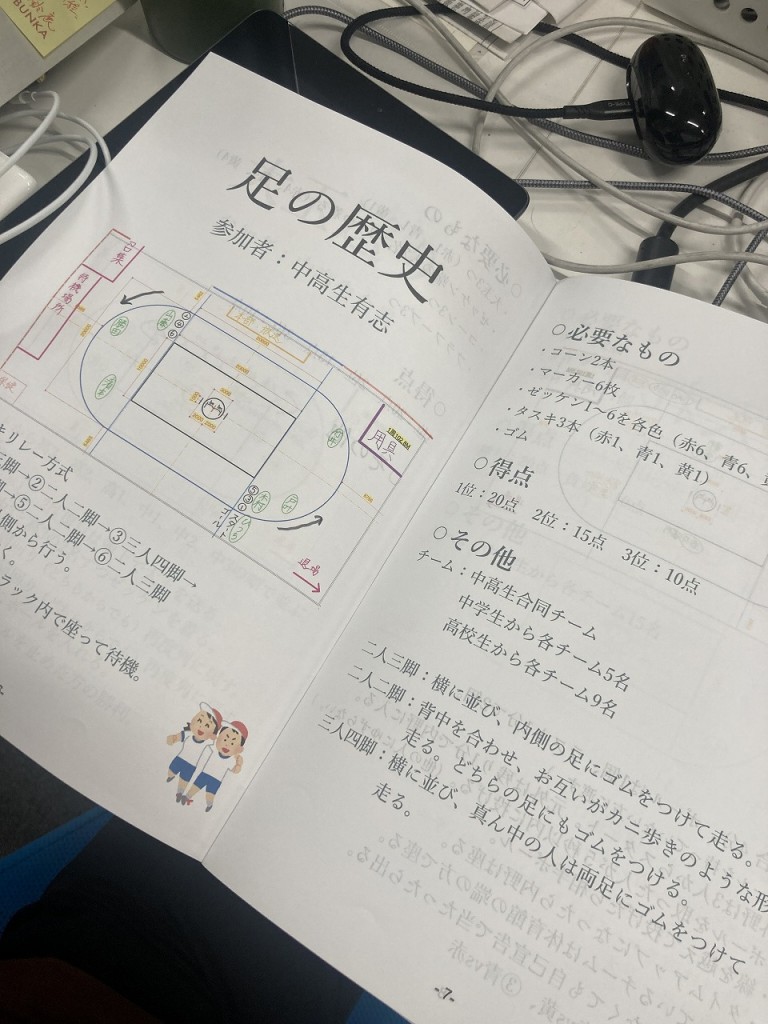 BUNKA
足の歴史
参加者：中高生有志
待機場所
用具
退場
スタート
ゴール
キリレー方式
三脚→②二人二脚→③三人四脚→
脚→⑤二人二脚→⑥二人三脚
側から行う。
く。
ラック内で座って待機。
○必要なもの
・コーン2本
・マーカー6枚
・ゼッケン1~6を各色（赤6、青6、黄
・タスキ3本（赤1、青1、黄1）
・ゴム
○得点
1位：20点 2位：15点 3位：10点
○その他
チーム：中高生合同チーム
中学生から各チーム5名
高校生から各チーム9名
二人三脚：横に並び、内側の足にゴムをつけて走る。
二人二脚：背中を合わせ、お互いがカニ歩きのような形
走る。どちらの足にもゴムをつける。
三人四脚：横に並び、真ん中の人は両足にゴムをつけて
走る。
-7-